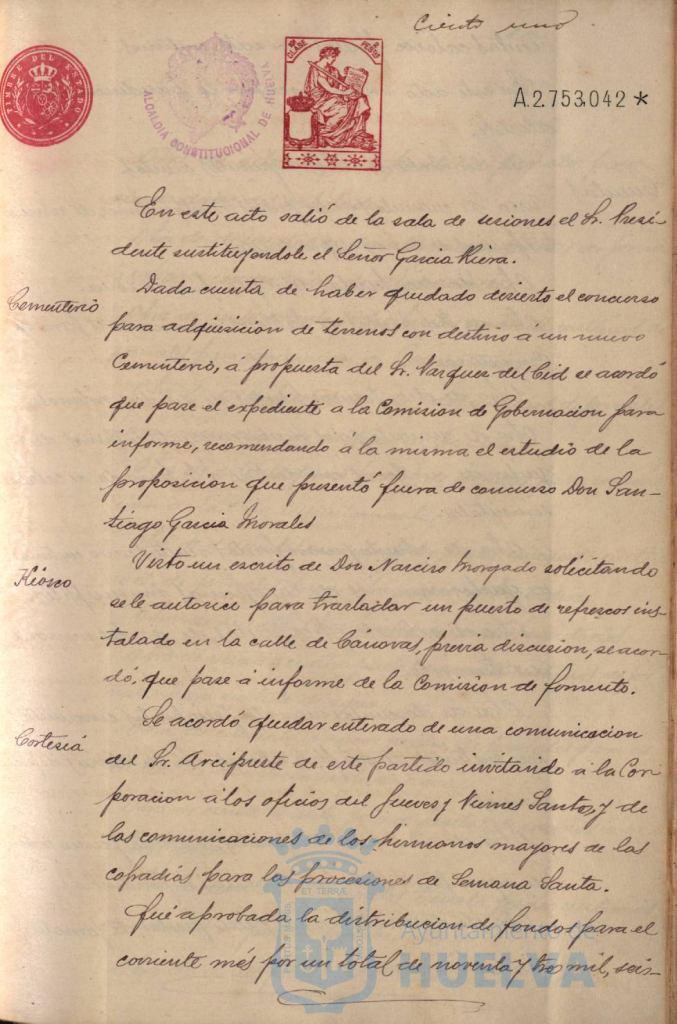 Ciento uno
TIMBRE DEL ESTADO
ALCALDIA CONSTITUCIONAL DE HUELVA
CLASE
PESETAS
A.2.753.042 *
En este acto salió de la sala de sesiones el Sr. Presi-
dente sustituyendole el Señor Garcia Riera.
Cementerio
Dada cuenta de haber quedado desierto el concurso
para adquisicion de terrenos con destino á un nuevo
Cementerio, á propuesta del Sr. Vazquez del Cid se acordó
que pase el expediente a la Comision de Gobernacion para
informe, recomendando á la misma el estudio de la
proposicion que presentó fuera de concurso Don San-
tiago Garcia Morales
Kiosco
Visto un escrito de Don Narciso Morgado solicitando
se le autorice para trasladar un puesto de refrescos ins-
talado en la calle de Cánovas, previa discusion, se acor-
dó, que pase á informe de la Comision de fomento.
Cortesiá
Se acordó quedar enterado de una comunicacion
del Sr. Arcipreste de este partido invitando á la Cor
poracion á los oficios del Jueves y Viernes Santo, y de
las comunicaciones de los hermanos mayores de las
cofradiás para las procesiones de Semana Santa.
Fué aprobada la distribucion de fondos para el
corriente més por un total de noventa y tres mil, seis-
Ayuntamiento de
HUELVA